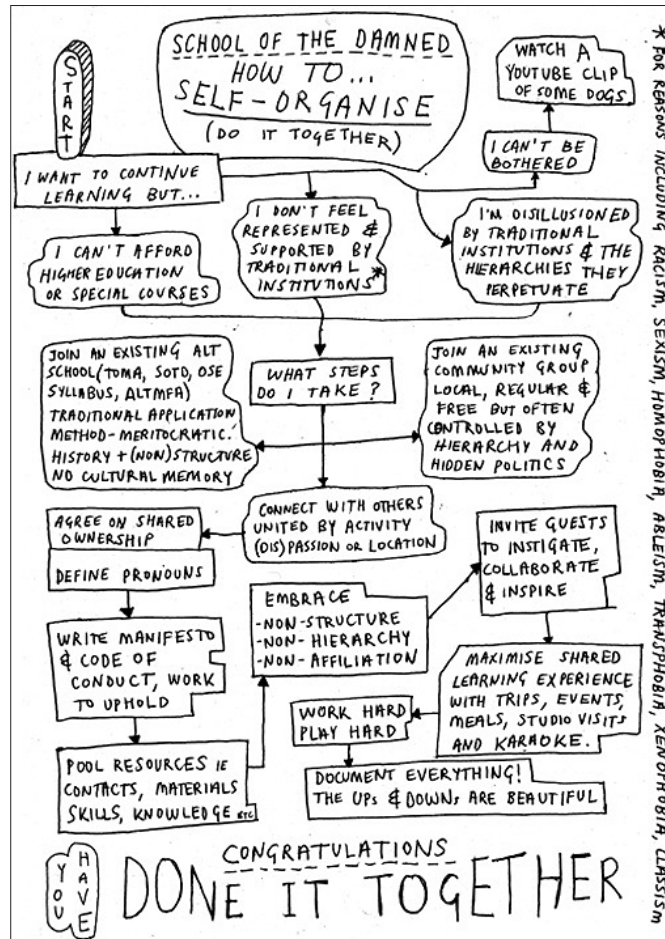 SCHOOL OF THE DAMNED
HOW TO...
SELF-ORGANISE
(DO IT TOGETHER)
START
I WANT TO CONTINUE
LEARNING BUT...
WATCH A
YOUTUBE CLIP
OF SOME DOGS
I CAN'T BE
BOTHERED
I CAN'T AFFORD
HIGHER EDUCATION
OR SPECIAL COURSES
I DON'T FEEL
REPRESENTED &
SUPPORTED BY
TRADITIONAL
INSTITUTIONS*
I'M DISILLUSIONED
BY TRADITIONAL
INSTITUTIONS & THE
HIERARCHIES THEY
PERPETUATE
WHAT STEPS
DO I TAKE?
JOIN AN EXISTING ALT
SCHOOL (TOMA, SOTD, OSE
SYLLABUS, ALTMFA)
TRADITIONAL APPLICATION
METHOD-MERITOCRATIC.
HISTORY + (NON) STRUCTURE
NO CULTURAL MEMORY
JOIN AN EXISTING
COMMUNITY GROUP
LOCAL, REGULAR &
FREE BUT OFTEN
CONTROLLED BY
HIERARCHY AND
HIDDEN POLITICS
CONNECT WITH OTHERS
UNITED BY ACTIVITY
(DIS) PASSION OR LOCATION
AGREE ON SHARED
OWNERSHIP
DEFINE PRONOUNS
WRITE MANIFESTO
& CODE OF
CONDUCT, WORK
TO UPHOLD
POOL RESOURCES IE
CONTACTS, MATERIALS
SKILLS, KNOWLEDGE ETC
EMBRACE
-NON-STRUCTURE
-NON-HIERARCHY
-NON-AFFILIATION
INVITE GUESTS
TO INSTIGATE,
COLLABORATE
& INSPIRE
MAXIMISE SHARED
LEARNING EXPERIENCE
WITH TRIPS, EVENTS,
MEALS, STUDIO VISITS
AND KARAOKE.
WORK HARD
PLAY HARD
DOCUMENT EVERYTHING!
THE UPs & DOWNs ARE BEAUTIFUL
CONGRATULATIONS
YOU
HAVE
DONE IT TOGETHER
* FOR REASONS INCLUDING RACISM, SEXISM, HOMOPHOBIA, ABLEISM, TRANSPHOBIA, XENOPHOBIA, CLASSISM